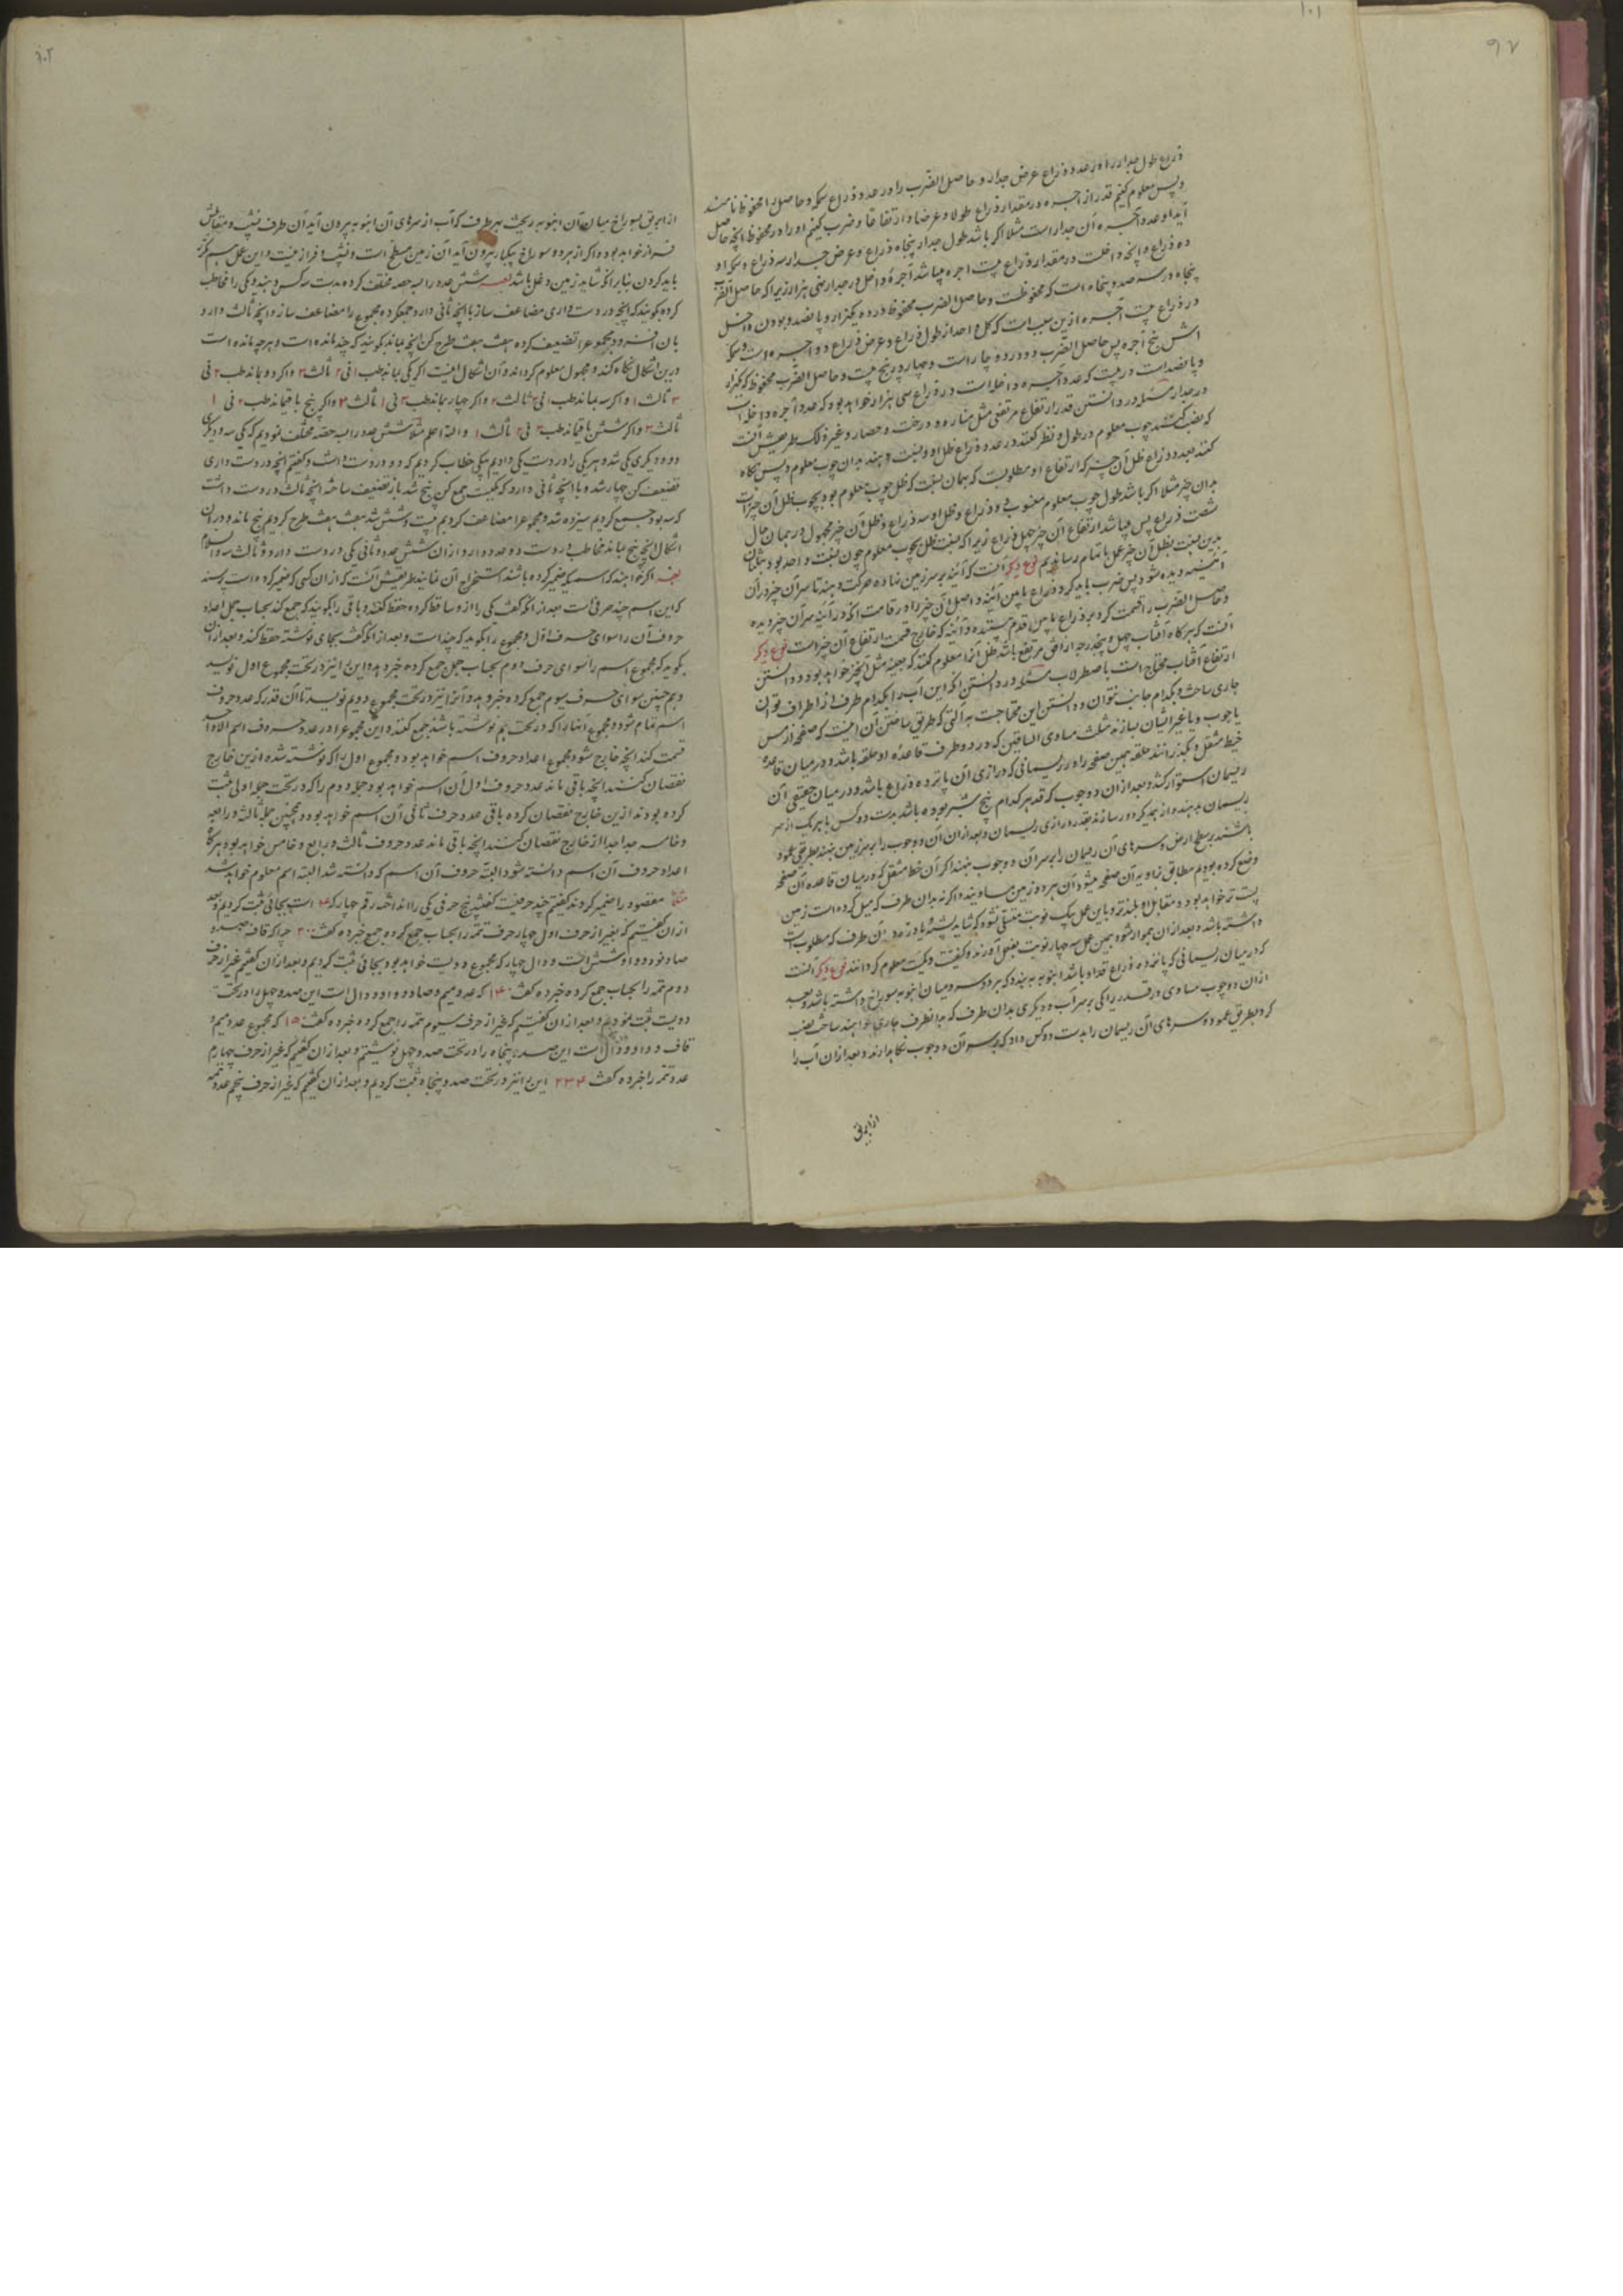 ۱۰۱
۹۷
ذراع طول جدار را در عدد ذراع عرض جدار و حاصل الضرب را در عدد ذراع سمک و حاصل را محفوظ نامند
و پس معلوم کنیم قدر از اجره در مقدار ذراع طولا و عرضا و ارتفاعا و ضرب کنیم او را در محفوظ انچه حاصل
آید او عدد آجره آن جدار است مثلا اکر باشد طول جدار پنجاه ذراع و عرض جدار سه ذراع و سمک او
ده ذراع و انچه داخلست در مقدار ذراع بیست اجره میباشد آجره داخل در جدار سی هزار زیرا که حاصل الضرب
پنجاه در سه صد و پنجاه است که محفوظست و حاصل الضرب محفوظ در ده یکهزار و پانصد و بودن داخل
در ذراع بیست آجره ازین سبب است که کل واحد از طول ذراع و عرض ذراع دو اجره است و سمک
اش پنج آجره پس حاصل الضرب دو در دو چار است و چهار در پنج بیست و حاصل الضرب محفوظ که یکهزار
و پانصد است در بیست که عدد آجره داخل است در ذراع سی هزار خواهد بود که عدد آجره داخله است
در جدار مسئله در دانستن قدر ارتفاع مرتفعی مثل مناره و درخت و حصار و غیره ذلک طریقش آنست
که نصب کنند چوب معلوم در طول و نظر کنند در عدد ذراع ظل او و نسبت دهند بدان چوب معلوم و پس نکاه
کنند بعدد ذراع ظل آن چیز که ارتفاع او مطلوبست که بهمان نسبت که ظل چوب معلوم بود بچوب ظل آن چیز است
بدان چیز مثلا اکر باشد طول چوب معلوم منصوب دو ذراع و ظل او سه ذراع و ظل آن چیز مجهول در همان حال
شصت ذراع پس میباشد ارتفاع آن چیز چهل ذراع زیرا که نسبت ظل بچوب معلوم چون نسبت واحد بود بمثلمان
بدین نسبت بظل آن چیز عمل باتمام رسانیدیم نوع دیکر آنست که آئینه بر سر زمین نهاده حرکت دهند تا سر آن چیز در آن
آئینه دیده شود پس ضرب باید کرد ذراع مابین آئینه و اصل آن چیز را در قامت انکه در آئینه سر آن چیز دیده
و حاصل الضرب را قسمت کرد بر ذراع مابین قدم بیننده و آئینه که خارج قسمت ارتفاع آن چیز است نوع دیکر
آنست که هرکاه آفتاب چهل و پنج درجه از افق مرتفع باشد ظل آنرا معلوم کنند که بعینه مثل آنچیز خواهد بود و دانستن
ارتفاع آفتاب محتاج است باصطرلاب مسئله در دانستن انکه این آب را بکدام طرف از اطراف توان
جاری ساخت و بکدام جانب نتوان و دانستن این محتاجست به آلتی که طریق ساختن آن اینست که صفحه از مس
یا چوب و یا غیر ایشان بسازند مثلث متساوی الساقین که در دو طرف قاعده او حلقه باشد و در میان قاعده
خیط مثقل و بکذرانند حلقه بهمین صفحه را در ریسمانی که درازی آن پانزده ذراع باشد و در میان حقیقی آن
ریسمان استوار کند و بعد از آن دو چوب که قد هر کدام پنج شبر بوده باشد بدست دو کس با هر یک از سر
ریسمان بدهند و از همدیکر دور سازند بقدر درازی ریسمان و بعد از آن آن دو چوب را بر سر زمین بنهند بطریق عمود
باشند بر سطح ارض و سرهای آن ریسمان را بر سر آن دو چوب بنهند اکر آن خط مثقل که در میان قاعده آن صفحه
وضع کرده بودیم مطابق زاویه آن صفحه میشود آن هر دو زمین مساویند و اکر نه بدان طرف که میل کرده است زمین
پست تر خواهد بود و مقابل او بلند تر و باین عمل بیک نوبت متسلی نشود که شاید پشته یا درّه در آن طرف که مطلوب است
داشته باشد و بعد از آن هموار شود بهمین عمل سه چهار نوبت بفعل آورند و کیفیت و کمیت معلوم کردانند نوع دیکر آنست
که در میان ریسمانی که پانزده ذراع قد او باشد انبوبه ببندد که هر دو سر و میان انبوبه سوراخ داشته باشد و بعد
ازان دو چوب مساوی در قد را یکی بر سر آب و دیکری بدان طرف که بدانطرف جاری خواهند ساخت نصب
کرد بطریق عمود و سرهای آن ریسمان را بدست دو کس داد که بر سر آن دو چوب نکاه دارند و بعد ازان آب را
از ابریق
۱۰۲
از ابریق بسوراخ میان آن انبوبه ریخت بهر طرف که آب از سرهای آن انبوبه بیرون آید آن طرف نشیب و مقابلش
فراز خواهد بود و اکر از هر دو سوراخ بیکبار بیرون آید آن زمین مسطح است و نشیب و فراز نیست و این عمل هم مکرّر
باید کردن بنابر انکه شاید زمین دغل باشد لعبه شش عدد را بسه حصه مختلف کرده بدست سه کس دهند و یکی را مخاطب
کرده کویند که انچه در دست داری مضاعف ساز با انچه ثانی دارد جمع کرده مجموع را مضاعف ساز و انچه ثالث دارد
بان افزود و مجموع را تضعیف کرده هشت هشت طرح کن انچه بماند بکویند که چند مانده است و هر چه مانده است
درین اشکال نکاه کند و مجهول معلوم کرداند و آن اشکال اینست اکر یکی بماند طب ۱ فی ۲ ثالث ۳ و اکر دو بماند طب ۲ فی
۳ ثالث ۱ و اکر سه بماند طب ۱ فی ۳ ثالث ۲ و اکر چهار بماند طب ۳ فی ۱ ثالث ۲ و اکر پنج باقیماند طب ۲ فی ۱
ثالث ۳ و اکر شش باقیماند طب ۳ فی ۲ ثالث ۱ والله اعلم مثلا شش عدد را بسه حصه مختلف نمودیم که یکی سه و دیکری
دو و دیکری یکی شد و هر یکی را در دست یکی دادیم بیکی خطاب کردیم که دو در دست داشت و کفتیم انچه در دست داری
تضعیف کن چهار شد و با انچه ثانی دارد که یکیست جمع کن پنج شد باز تضعیف ساخته انچه ثالث در دست داشت
که سه بود جمع کردیم سیزده شد و مجموع را مضاعف کردیم بیست و شش شد هشت هشت طرح کردیم پنج ماند و در آن
اشکال انچه پنج بماند مخاطب در دست دو عدد دارد از ان شش عدد و ثانی یکی در دست دارد و ثالث سه والسلام
لعبه اکر خواهند که اسمی که ضمیر کرده باشند استخراج آن نمایند طریقش آنست که از ان کسی که ضمیر کرده است پرسند
که این اسم چند حرفی است بعد از انکه کفت یکی را ازو ساقط کرده حفظ کنند و باقی را بکویند که جمع کند بحساب جمل اعداد
حروف آن را سوای حرف اول و مجموع را بکوید که چند است و بعد از انکه کفت بجای نوشته حفظ کنند و بعد از ان
بکوید که مجموع اسم را سوای حرف دوم بحساب جمل جمع کرده خبر دهد و این را نیز در تحت مجموع اول نویسد
و همچنین سوای حرف سیوم جمع کرده خبر دهد و آنرا نیز در تحت مجموع دویم نویسد تا آن قدر که عدد حروف
اسم تمام شود و مجموع اینها را که در تحت هم نوشته باشد جمع کند و این مجموع را در عدد حروف اسم الا واحد
قسمت کند انچه خارج شود مجموع اعداد حروف اسم خواهد بود و مجموع اول را که نوشته شده ازین خارج
نقصان کنند انچه باقی ماند عدد حروف اول آن اسم خواهد بود و جمله دوم را که در تحت جمله اولی ثبت
کرده بودند ازین خارج نقصان کرده باقی عدد حرف ثانی آن اسم خواهد بود و همچنین جمله ثالثه و رابعه
و خامسه جدا جدا از خارج نقصان کنند انچه باقی ماند عدد حروف ثالث و رابع و خامس خواهد بود هرکاه
اعداد حروف آن اسم دانسته شود البته حروف آن اسم که دانسته شد البته اسم معلوم خواهد شد
مثلا مقصود را ضمیر کردند کفتیم چند حرفیست کفتند پنج حرفی یکی را انداخته رقم چهار که ۴ است بجائی ثبت کردیم و بعد
ازان کفتیم که بغیر از حرف اول چهار حرف تتمه را بحساب جمع کرده جمع خبر ده کفت ۲۰۰ چرا که قاف صد و
صاد نود و واو شش است و دال چهار که مجموع دویست خواهد بود بجائی ثبت کردیم و بعد ازان کفتیم غیر از حرف
دوم تتمه را بحساب جمع کرده خبر ده کفت ۱۴۰ که عدد میم و صاد و واو و دال است این صد و چهل را در تحت
دویست ثبت نمودیم و بعد ازان کفتیم که غیر از حرف سیوم تتمه را جمع کرده خبر ده کفت ۱۵۰ که مجموع عدد میم و
قاف و واو و دال است این صد و پنجاه را در تحت صد و چهل نوشتیم و بعد ازان کفتیم که غیر از حرف چهارم
عدد تتمه را خبر ده کفت ۲۳۴ این را نیز در تحت صد و پنجاه ثبت کردیم و بعد ازان کفتیم که غیر از حرف پنجم عدد تتمه